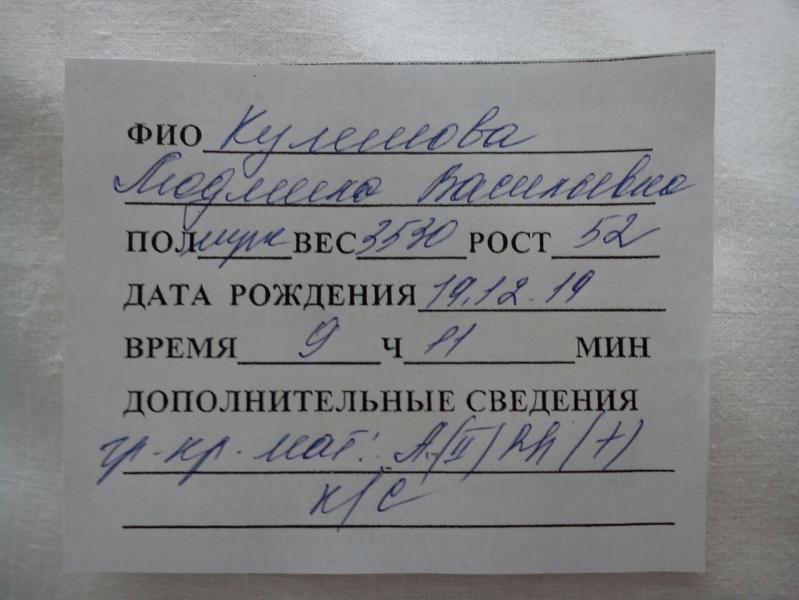 ФИО Кулешова
Людмила Васильевна
ПОЛ муж ВЕС 3530 РОСТ 52
ДАТА РОЖДЕНИЯ 19.12.19
ВРЕМЯ 9 Ч 11 МИН
ДОПОЛНИТЕЛЬНЫЕ СВЕДЕНИЯ
гр. кр. мат: A(II) Rh (+)
к/с